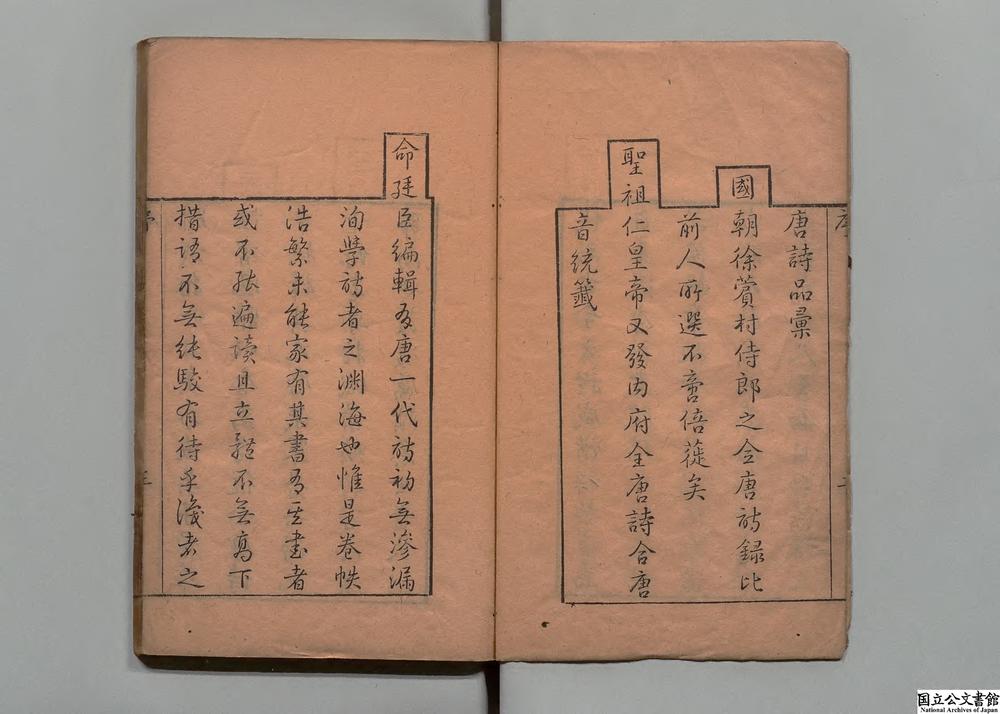 唐詩品彙
國朝徐蘋村侍郎之全唐詩録比
前人所選不啻倍蓰矣
聖祖仁皇帝又發內府全唐詩合唐
音統籤
命廷臣編輯為唐一代詩初無滲漏
洵學詩者之淵海也惟是卷帙
浩繁未能家有其書有其書者
或不能遍讀且立體不無高下
措語不無純駁有待乎識者之
序
三
国立公文書館
National Archives of Japan